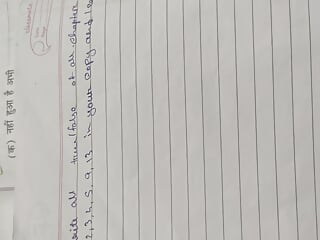 (क) नहीं हुआ है अभी
write all true/false of all chapter
2,3,4,5,9,13 in your copy and